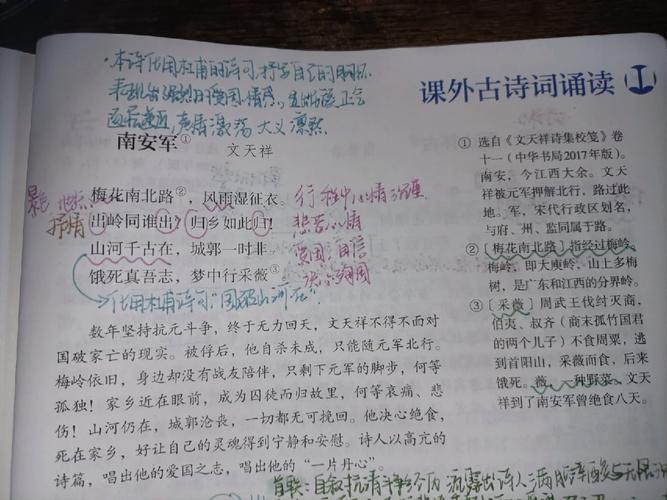 ·本诗化用杜甫的诗句,抒写自己的胸怀
表现出强烈的爱国情感,
声情激荡 大义凛然
课外古诗词诵读 I
南安军①
文天祥
梅花南北路②,风雨湿征衣。
出岭同谁出?归乡如此归!
山河千古在,城郭一时非。
饿死真吾志,梦中行采薇③。
抒情
行程中心情
悲苦心情
爱国 自信
化用杜甫诗句“国破山河在”
数年坚持抗元斗争,终于无力回天,文天祥不得不面对
国破家亡的现实。被俘后,他自杀未成,只能随元军北行。
梅岭依旧,身边却没有战友陪伴,只剩下元军的脚步,何等
孤独!家乡近在眼前,成为囚徒而归故里,何等哀痛、悲
伤!山河仍在,城郭沧丧,一切都无可挽回。他决心绝食,
死在家乡,好让自己的灵魂得到宁静和安慰。诗人以高亢的
诗篇,唱出他的爱国之志,唱出他的“一片丹心”。
① 选自《文天祥诗集校笺》卷
十一(中华书局2017年版)。
南安,今江西大余。文天
祥被元军押解北行,路过此
地。军,宋代行政区划名,
与府、州、监同属于路。
②〔梅花南北路〕指经过梅岭。
梅岭,即大庾岭,山上多梅
树,是广东和江西的分界岭。
③〔采薇〕周武王伐纣灭商,
伯夷、叔齐(商末孤竹国君
的两个儿子)不食周粟,逃
到首阳山,采薇而食,后来
饿死。薇,一种野菜。文天
祥到了南安军曾绝食八天。
首联:自叙抗清斗争经历